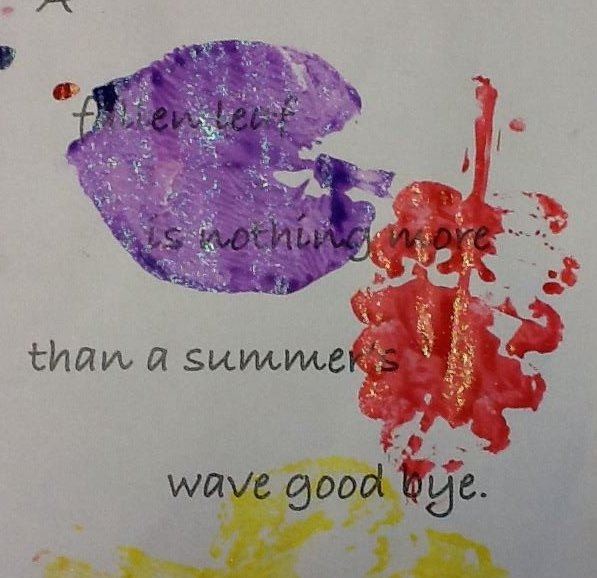 A
fallen leaf
is nothing more
than a summer's
wave good bye.